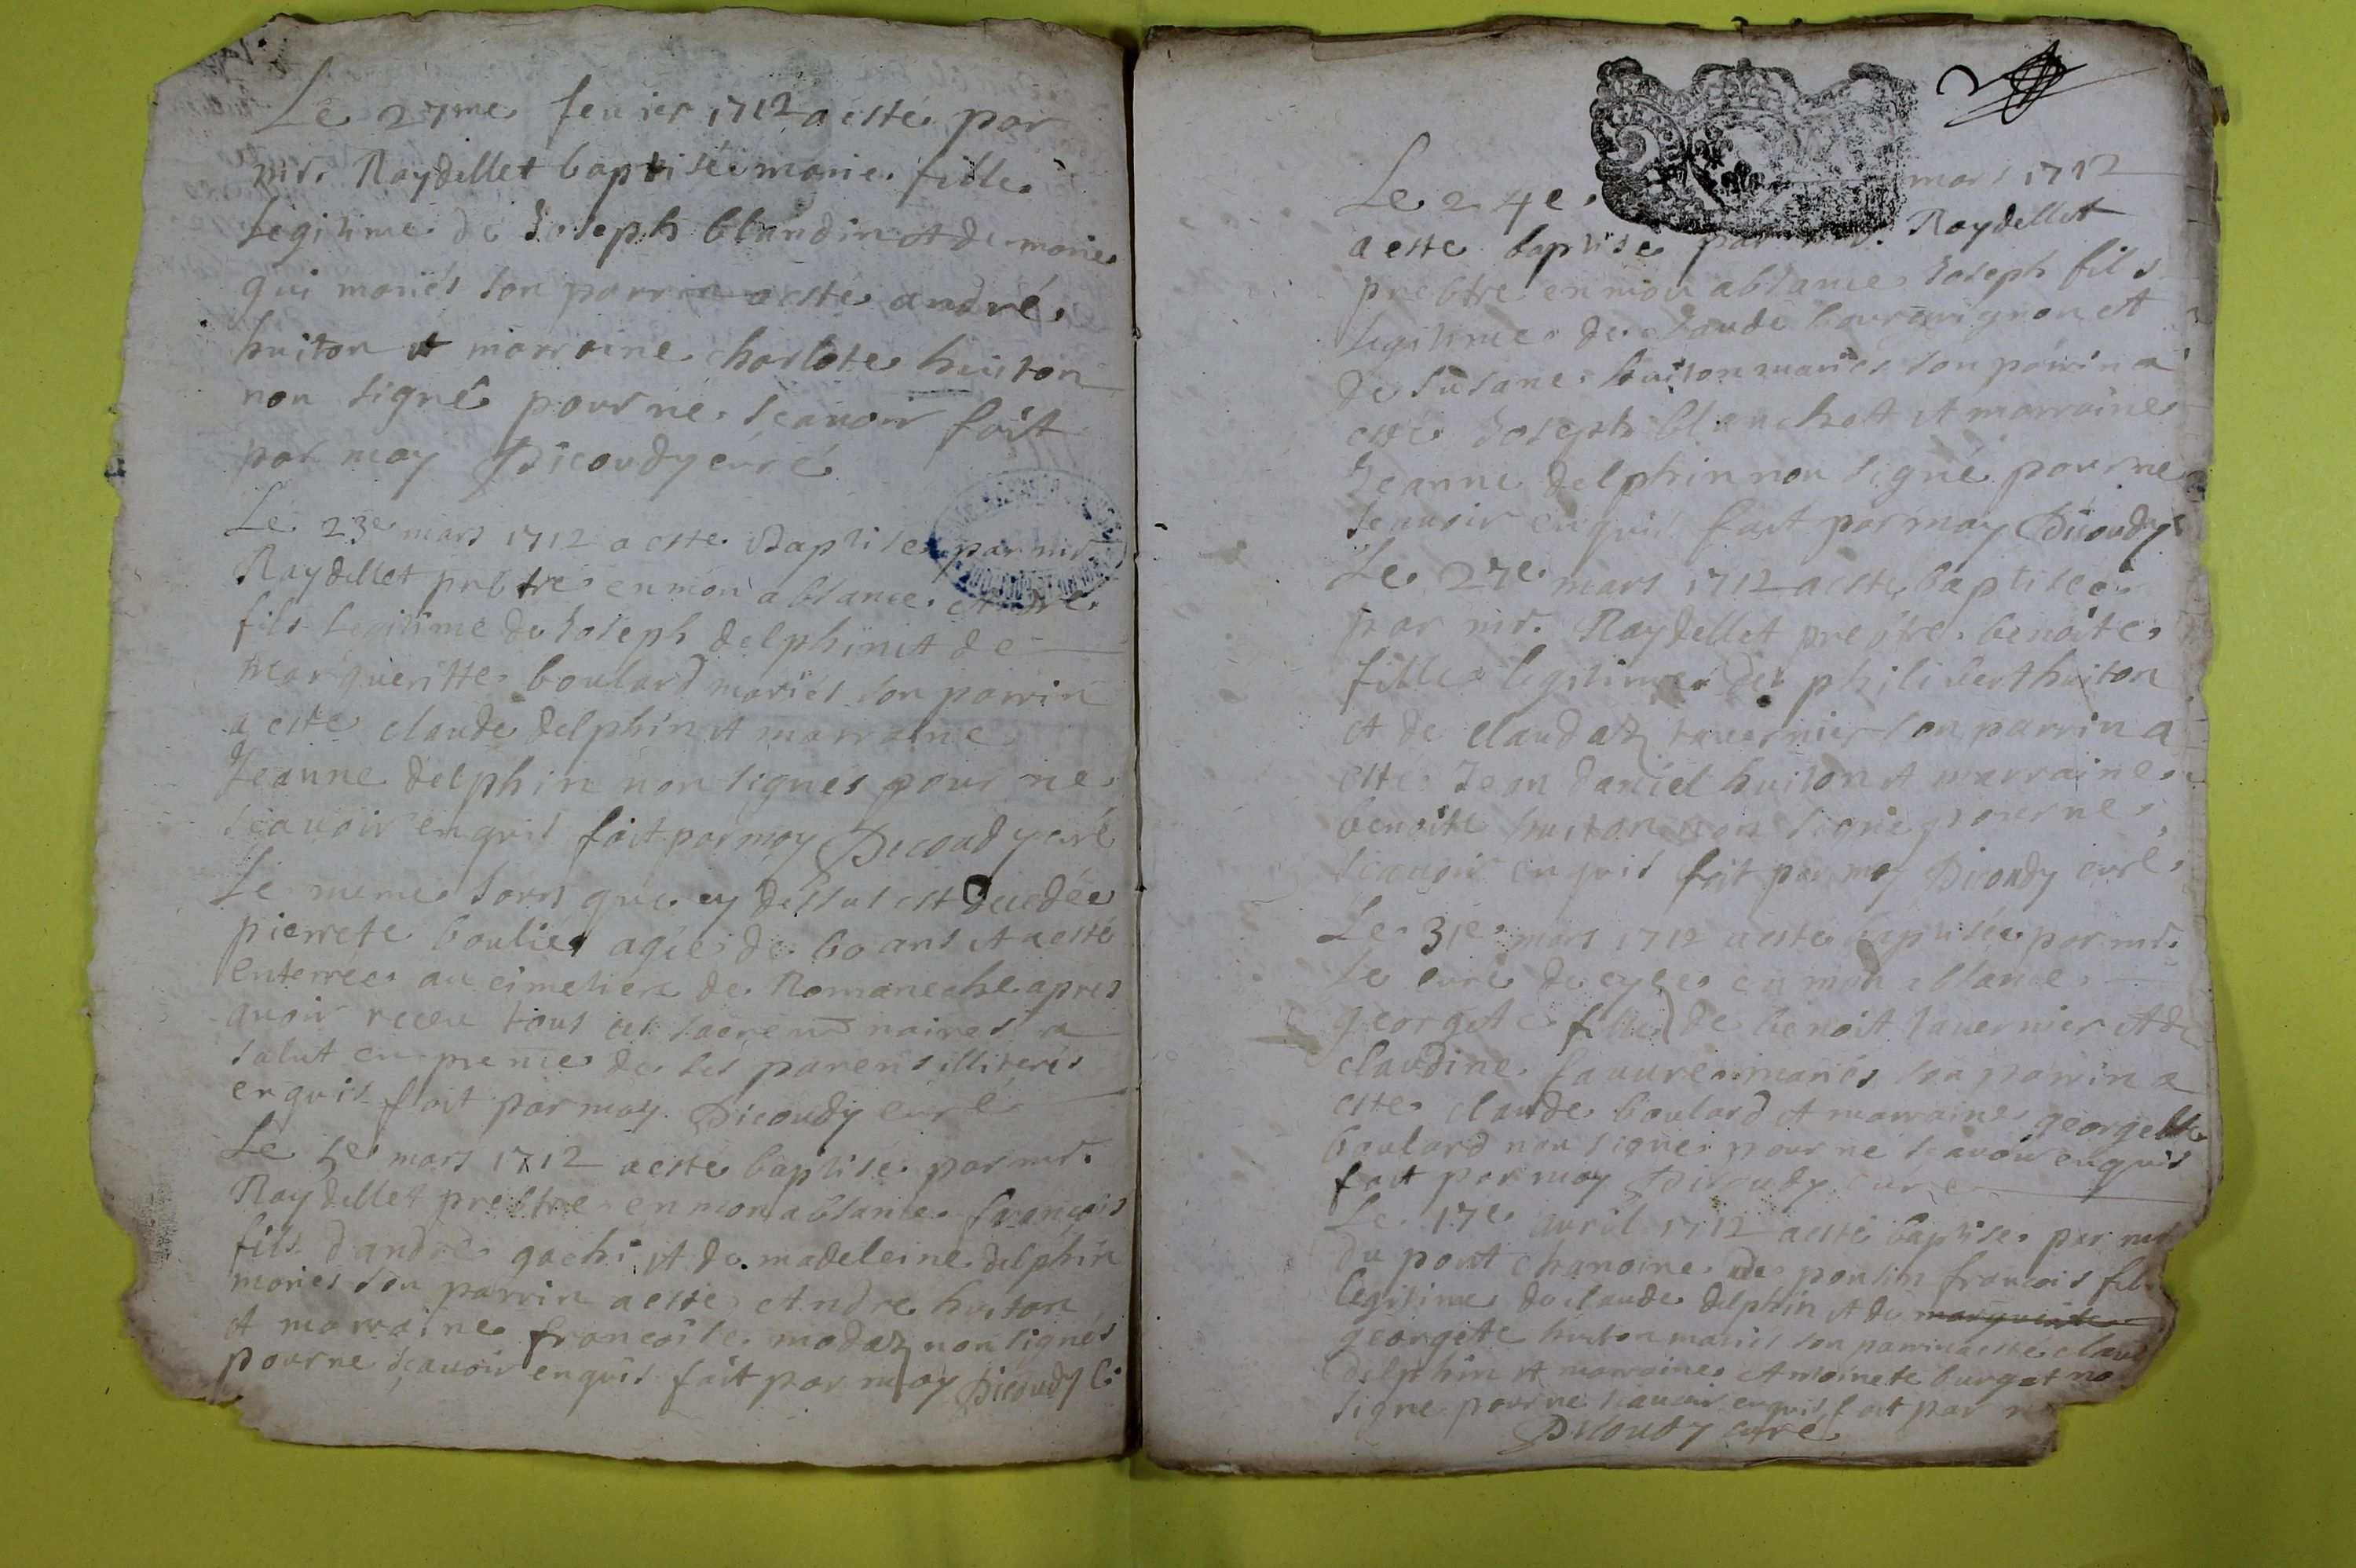 Le 27me feurier 1712 a esté par
mr. Raydellet baptisée marie fille
legitime de Joseph blandin et de marie
qui mariés son parrin a esté andré
huiton et marraine charlote huiton
non signé pour ne scauoir fait
par moy Dicoudy curé
Le 23e mars 1712 a este Baptise par mr
Raydellet prebtre en mon absance andre
fils legitime de Joseph delphin et de
marqueritte boulard mariés son parrin
a este claude delphin et marraine
Jeanne delphin non signes pour ne
scauoir enquis fait par moy Dicoudy curé
Le meme Jour que cy dessus est decedée
pierrete boulier agée de 60 ans et a esté
enterrée au cimetiere de Romaneche apres
auoir receu tous les sacremt naires a
salut en pnence de ses parens illiterés
enquis fait par moy Dicoudy curé
Le 5e mars 1712 a este baptisé par mr.
Raydellet prebtre en mon absance francois
fils d'andre gachi et de madeleine delphin
mariés son parrin a este Andre huiton
et marraine francoise madaz non signés
pour ne scauoir enquis fait par moy Dicoudy
Le 24e mars 1712
a este baptisé par mr. Raydellet
prebtre en mon absance Joseph fils
legitime de claude bourguignon et
de Susane huiton mariés son parrin a
esté Joseph blanchet et marraine
Jeanne delphin non signé pour ne
scauoir enquis fait par moy Dicoudy
Le 27e mars 1712 a este baptisée
par mr. Raydellet prestre benoite
fille legitime de philibert huiton
et de claudaz tauernier son parrin a
esté Jean daniel huiton et marraine
benoite huiton non signé pour ne
scauoir enquis fait par moy Dicoudy curé
Le 31e mars 1712 a esté baptisée par mr.
le curé de en mon absance
georgete fille de benoit tauernier et de
claudine fauure mariés son parrin a
este claude boulard et marraine georgette
boulard non signé pour ne scauoir enquis
fait par moy Dicoudy curé
Le 17e auril 1712 a esté baptisé par mr
du pont chanoine de poncin francois fils
legitime de claude delphin et de marguerite
georgete huiton mariés son parrin a este claud
delphin et marraine Antoinete burget no
signe pour ne scauoir enquis fait par m
Dicoudy curé